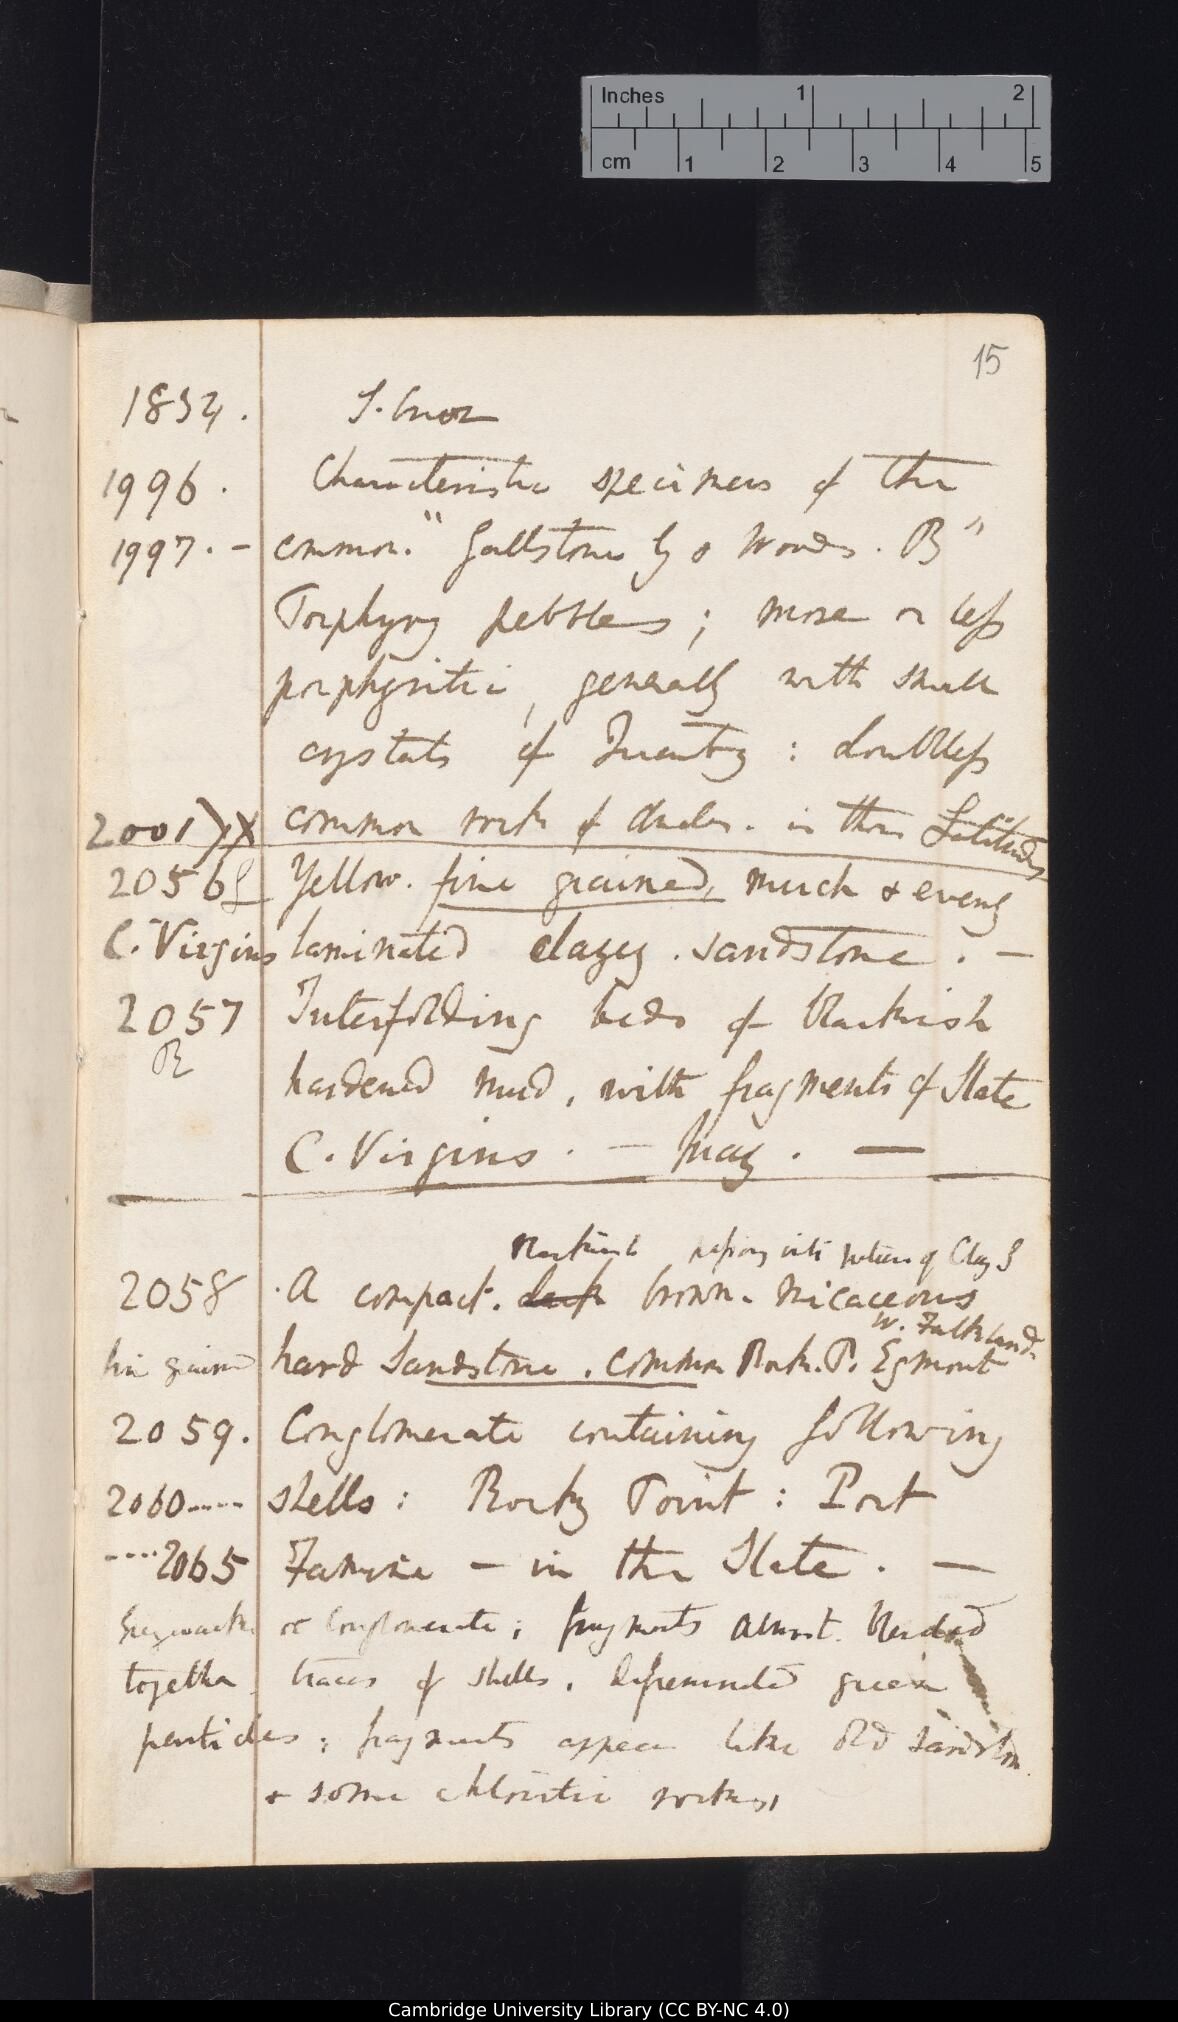 Inches 1 2
cm 1 2 3 4 5
15
1834. S. Cruz
1996. Characteristic specimens of the
1997. — common
Porphyry pebbles; more or less
porphyritic, generally with small
crystals of Quartz: doubtless
2001 X common rock of Andes. in these Latitudes
2056 Yellow. fine grained, much & evenly
C. Virgins laminated clayey. sandstone. —
2057 Interfolding beds of blackish
R hardened mud, with fragments of Slate
C. Virgins. — May. —
Blackish passing into nature of Clay S
2058 A compact. dark brown. micaceous
W. Falklands
fine grained hard Sandstone. common Rock. P. Egmont
2059. Conglomerate containing following
2060..... shells: Rocky Point: Port
....2065 Famine — in the Slate. —
Greywacke or Conglomerate; fragments almost. blended
together traces of shells. disseminated green
particles; fragments appear like old sandstone
& some chloritic rocks,
Cambridge University Library (CC BY-NC 4.0)